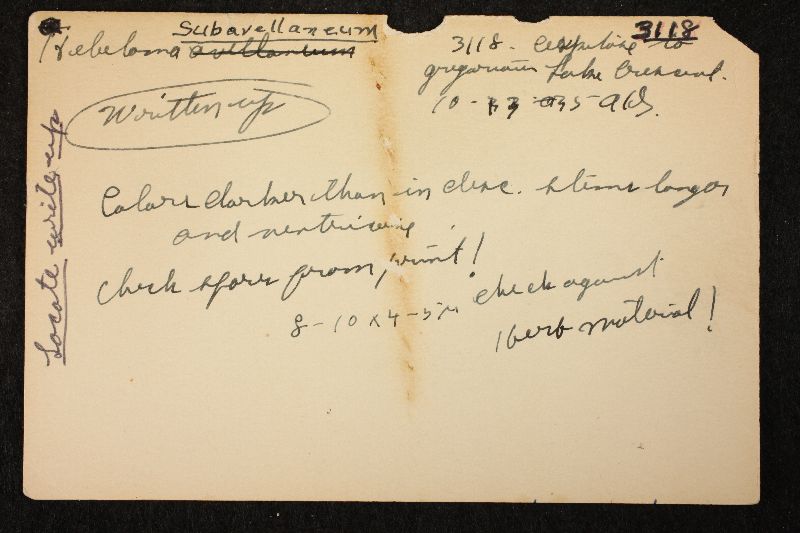 Subavellaneum
3118
Hebeloma avellaneum
3118. Cespitose to
gregarious Lake Crescent.
10- -35 AHS.
Written up
Locate write up
Colors darker than in desc. stems longer
and ventricose
check spores from print!
8-10 x 4-5µ
check against
herb material!